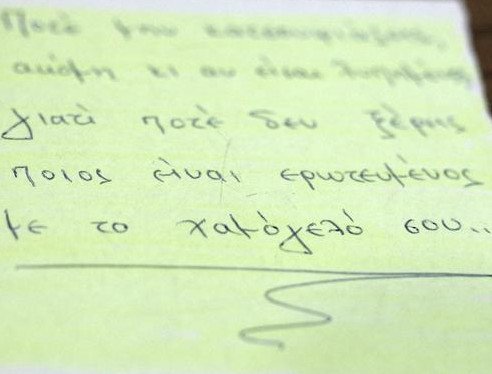 Ποτέ μην κατσουφιάζεις,
ακόμη κι αν είσαι λυπημένος
γιατί ποτέ δεν ξέρεις
ποιος είναι ερωτευμένος
με το χαμόγελό σου..